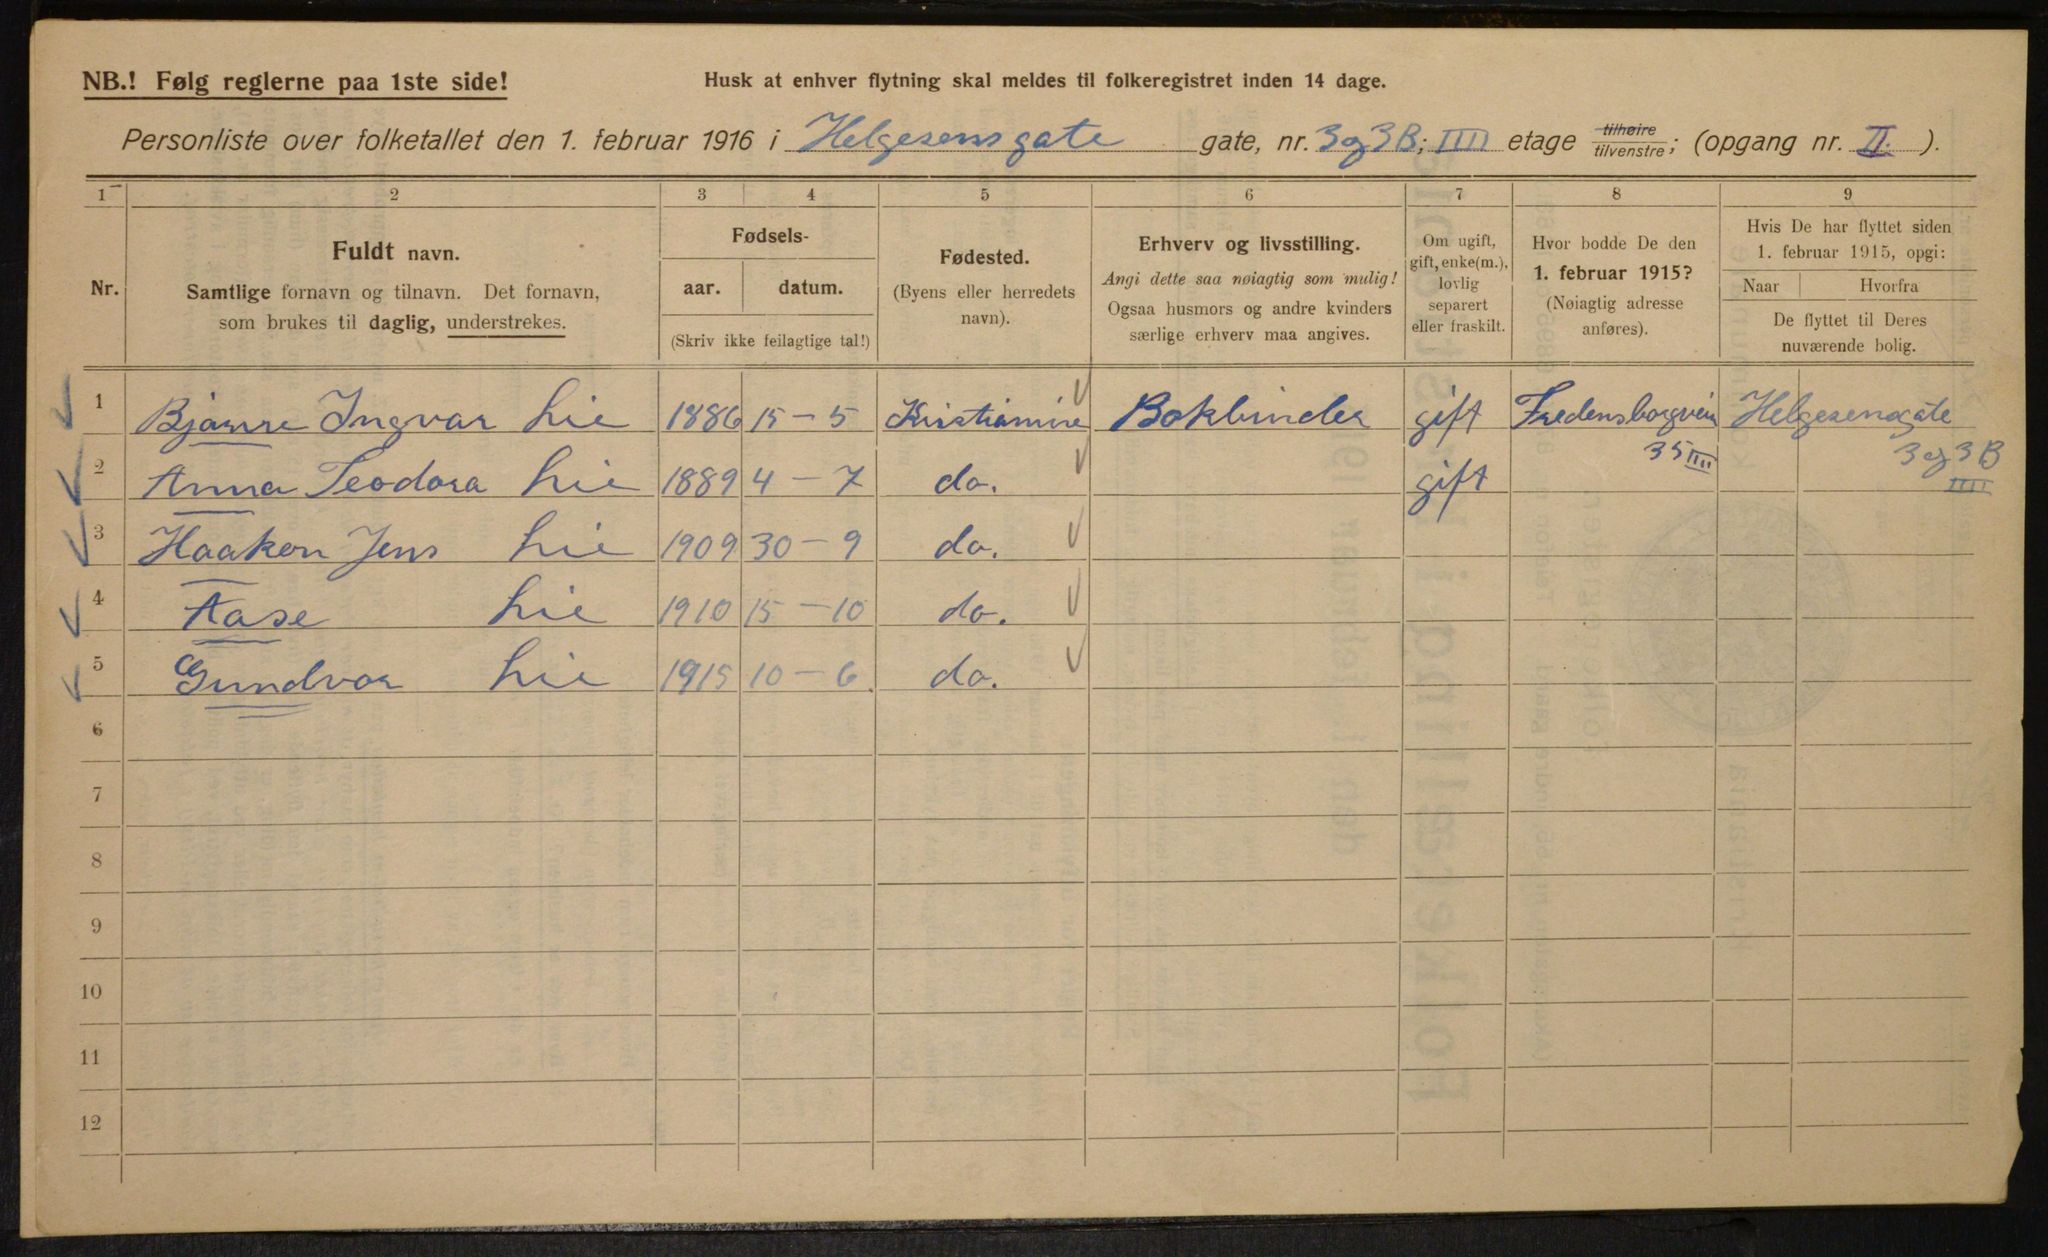 NB.! Følg reglerne paa 1ste side!
Husk at enhver flytning skal meldes til folkeregistret inden 14 dage.
Personliste over folketallet den 1. februar 1916 i Helgesensgate gate, nr. 3 og 3B; IIII etage tilhøire tilvenstre; (opgang nr. II. ).
1 2 3 4 5 6 7 8 9
Nr.
Fuldt navn.
Samtlige fornavn og tilnavn. Det fornavn,
som brukes til daglig, understrekes.
Fødsels-
aar. datum.
(Skriv ikke feilagtige tal!)
Fødested.
(Byens eller herredets
navn).
Erhverv og livsstilling.
Angi dette saa nøiagtig som mulig!
Ogsaa husmors og andre kvinders
særlige erhverv maa angives.
Om ugift,
gift, enke(m.),
lovlig
separert
eller fraskilt.
Hvor bodde De den
1. februar 1915?
(Nøiagtig adresse
anføres).
Hvis De har flyttet siden
1. februar 1915, opgi:
Naar Hvorfra
De flyttet til Deres
nuværende bolig.
1 Bjarne Ingvar Lie 1886 15-5 Kristiania Bokbinder gift Fredensborgvein 35 IIII Helgesensgate 3 og 3B IIII
2 Anna Teodora Lie 1889 4-7 do. gift
3 Haakon Jens Lie 1909 30-9 do.
4 Aase Lie 1910 15-10 do.
5 Gundvor Lie 1915 10-6. do.
6
7
8
9
10
11
12